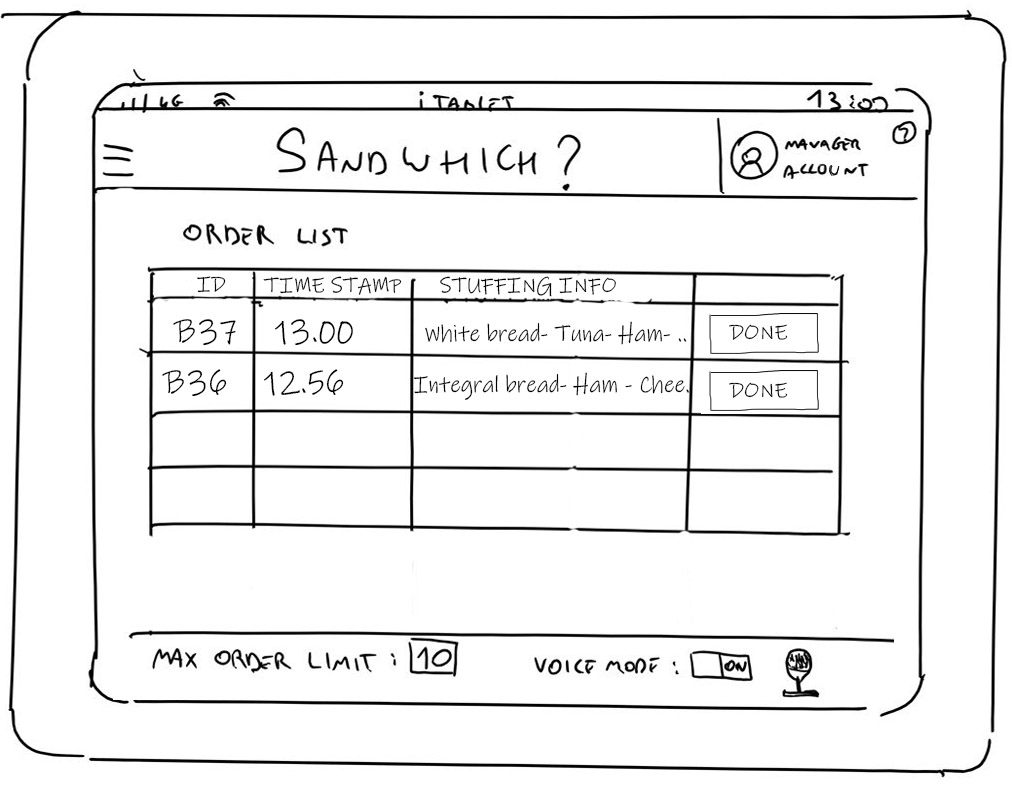 4G iTABLET 13:00
SANDWHICH?
MANAGER
ACCOUNT
?
ORDER LIST
ID TIME STAMP STUFFING INFO
B37 13.00 White bread- Tuna- Ham- .. DONE
B36 12.56 Integral bread- Ham - Chee. DONE
MAX ORDER LIMIT: 10 VOICE MODE: ON